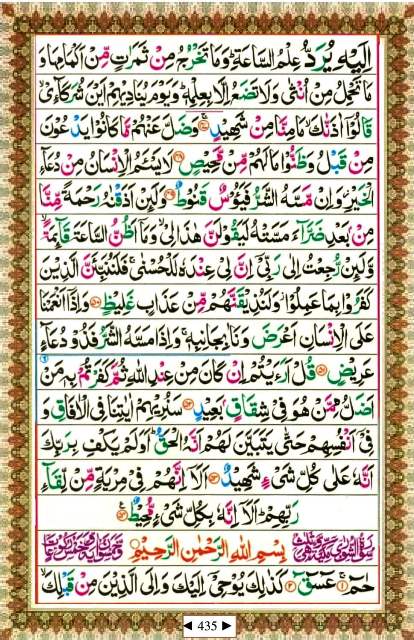 اِلَيْهِ يُرَدُّ عِلْمُ السَّاعَةِ ؕ وَمَا تَخْرُجُ مِنْ ثَمَرٰتٍ مِّنْ اَكْمَامِهَا وَ
مَا تَحْمِلُ مِنْ اُنْثٰى وَلَا تَضَعُ اِلَّا بِعِلْمِهٖ ؕ وَيَوْمَ يُنَادِيْهِمْ اَيْنَ شُرَكَآءِىْ ۙ
قَالُوْۤا اٰذَنّٰكَ ۙ مَا مِنَّا مِنْ شَهِيْدٍ ۚ‏﴿۴۷﴾ وَضَلَّ عَنْهُمْ مَّا كَانُوْا يَدْعُوْنَ
مِنْ قَبْلُ وَظَنُّوْا مَا لَهُمْ مِّنْ مَّحِيْصٍ ﴿۴۸﴾ لَا يَسْـَٔمُ الْاِنْسَانُ مِنْ دُعَآءِ
الْخَيْرِ ۫ وَاِنْ مَّسَّهُ الشَّرُّ فَيَـُٔوْسٌ قَنُوْطٌ ﴿۴۹﴾ وَلَئِنْ اَذَقْنٰهُ رَحْمَةً مِّنَّا
مِنْۢ بَعْدِ ضَرَّآءَ مَسَّتْهُ لَيَقُوْلَنَّ هٰذَا لِىْ ۙ وَمَاۤ اَظُنُّ السَّاعَةَ قَآئِمَةً ۙ
وَّلَئِنْ رُّجِعْتُ اِلٰى رَبِّىْۤ اِنَّ لِىْ عِنْدَهٗ لَلْحُسْنٰى ۚ فَلَنُنَبِّئَنَّ الَّذِيْنَ
كَفَرُوْا بِمَا عَمِلُوْا ۫ وَلَنُذِيْقَنَّهُمْ مِّنْ عَذَابٍ غَلِيْظٍ ﴿۵۰﴾ وَاِذَاۤ اَنْعَمْنَا
عَلَى الْاِنْسَانِ اَعْرَضَ وَنَاٰ بِجَانِبِهٖ ۚ وَاِذَا مَسَّهُ الشَّرُّ فَذُوْ دُعَآءٍ
عَرِيْضٍ ﴿۵۱﴾ قُلْ اَرَءَيْتُمْ اِنْ كَانَ مِنْ عِنْدِ اللّٰهِ ثُمَّ كَفَرْتُمْ بِهٖ مَنْ
اَضَلُّ مِمَّنْ هُوَ فِىْ شِقَاقٍۢ بَعِيْدٍ ﴿۵۲﴾ سَنُرِيْهِمْ اٰيٰتِنَا فِى الْاٰفَاقِ وَ
فِىْۤ اَنْفُسِهِمْ حَتّٰى يَتَبَيَّنَ لَهُمْ اَنَّهُ الْحَقُّ ؕ اَوَلَمْ يَكْفِ بِرَبِّكَ
اَنَّهٗ عَلٰى كُلِّ شَىْءٍ شَهِيْدٌ ﴿۵۳﴾ اَلَاۤ اِنَّهُمْ فِىْ مِرْيَةٍ مِّنْ لِّقَآءِ
رَبِّهِمْ ؕ اَلَاۤ اِنَّهٗ بِكُلِّ شَىْءٍ مُّحِيْطٌ ﴿۵۴﴾
بِسْمِ اللّٰهِ الرَّحْمٰنِ الرَّحِيْمِ
حٰمٓ ﴿۱﴾ عٓسٓقٓ ﴿۲﴾ كَذٰلِكَ يُوْحِىْۤ اِلَيْكَ وَاِلَى الَّذِيْنَ مِنْ قَبْلِكَ
◄ 435 ►